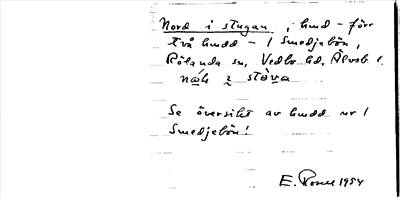 Nord i stugan, hund - förr
två hudd - i Smedjebön,
Rölanda sn, Vedbo hd, Älvsb. l.
näh i stòva
Se översikt av hudd nr 1
Smedjebön!
E. 1954